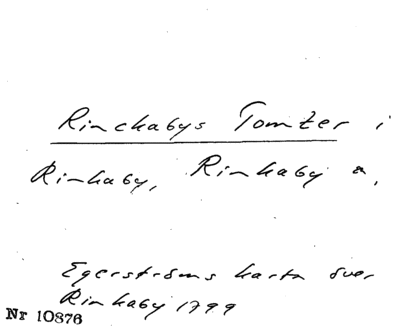 Rinckabys Tomter i
Rinkaby, Rinkaby
Egerströms karta över
Rinkaby 1799
Nr 10876